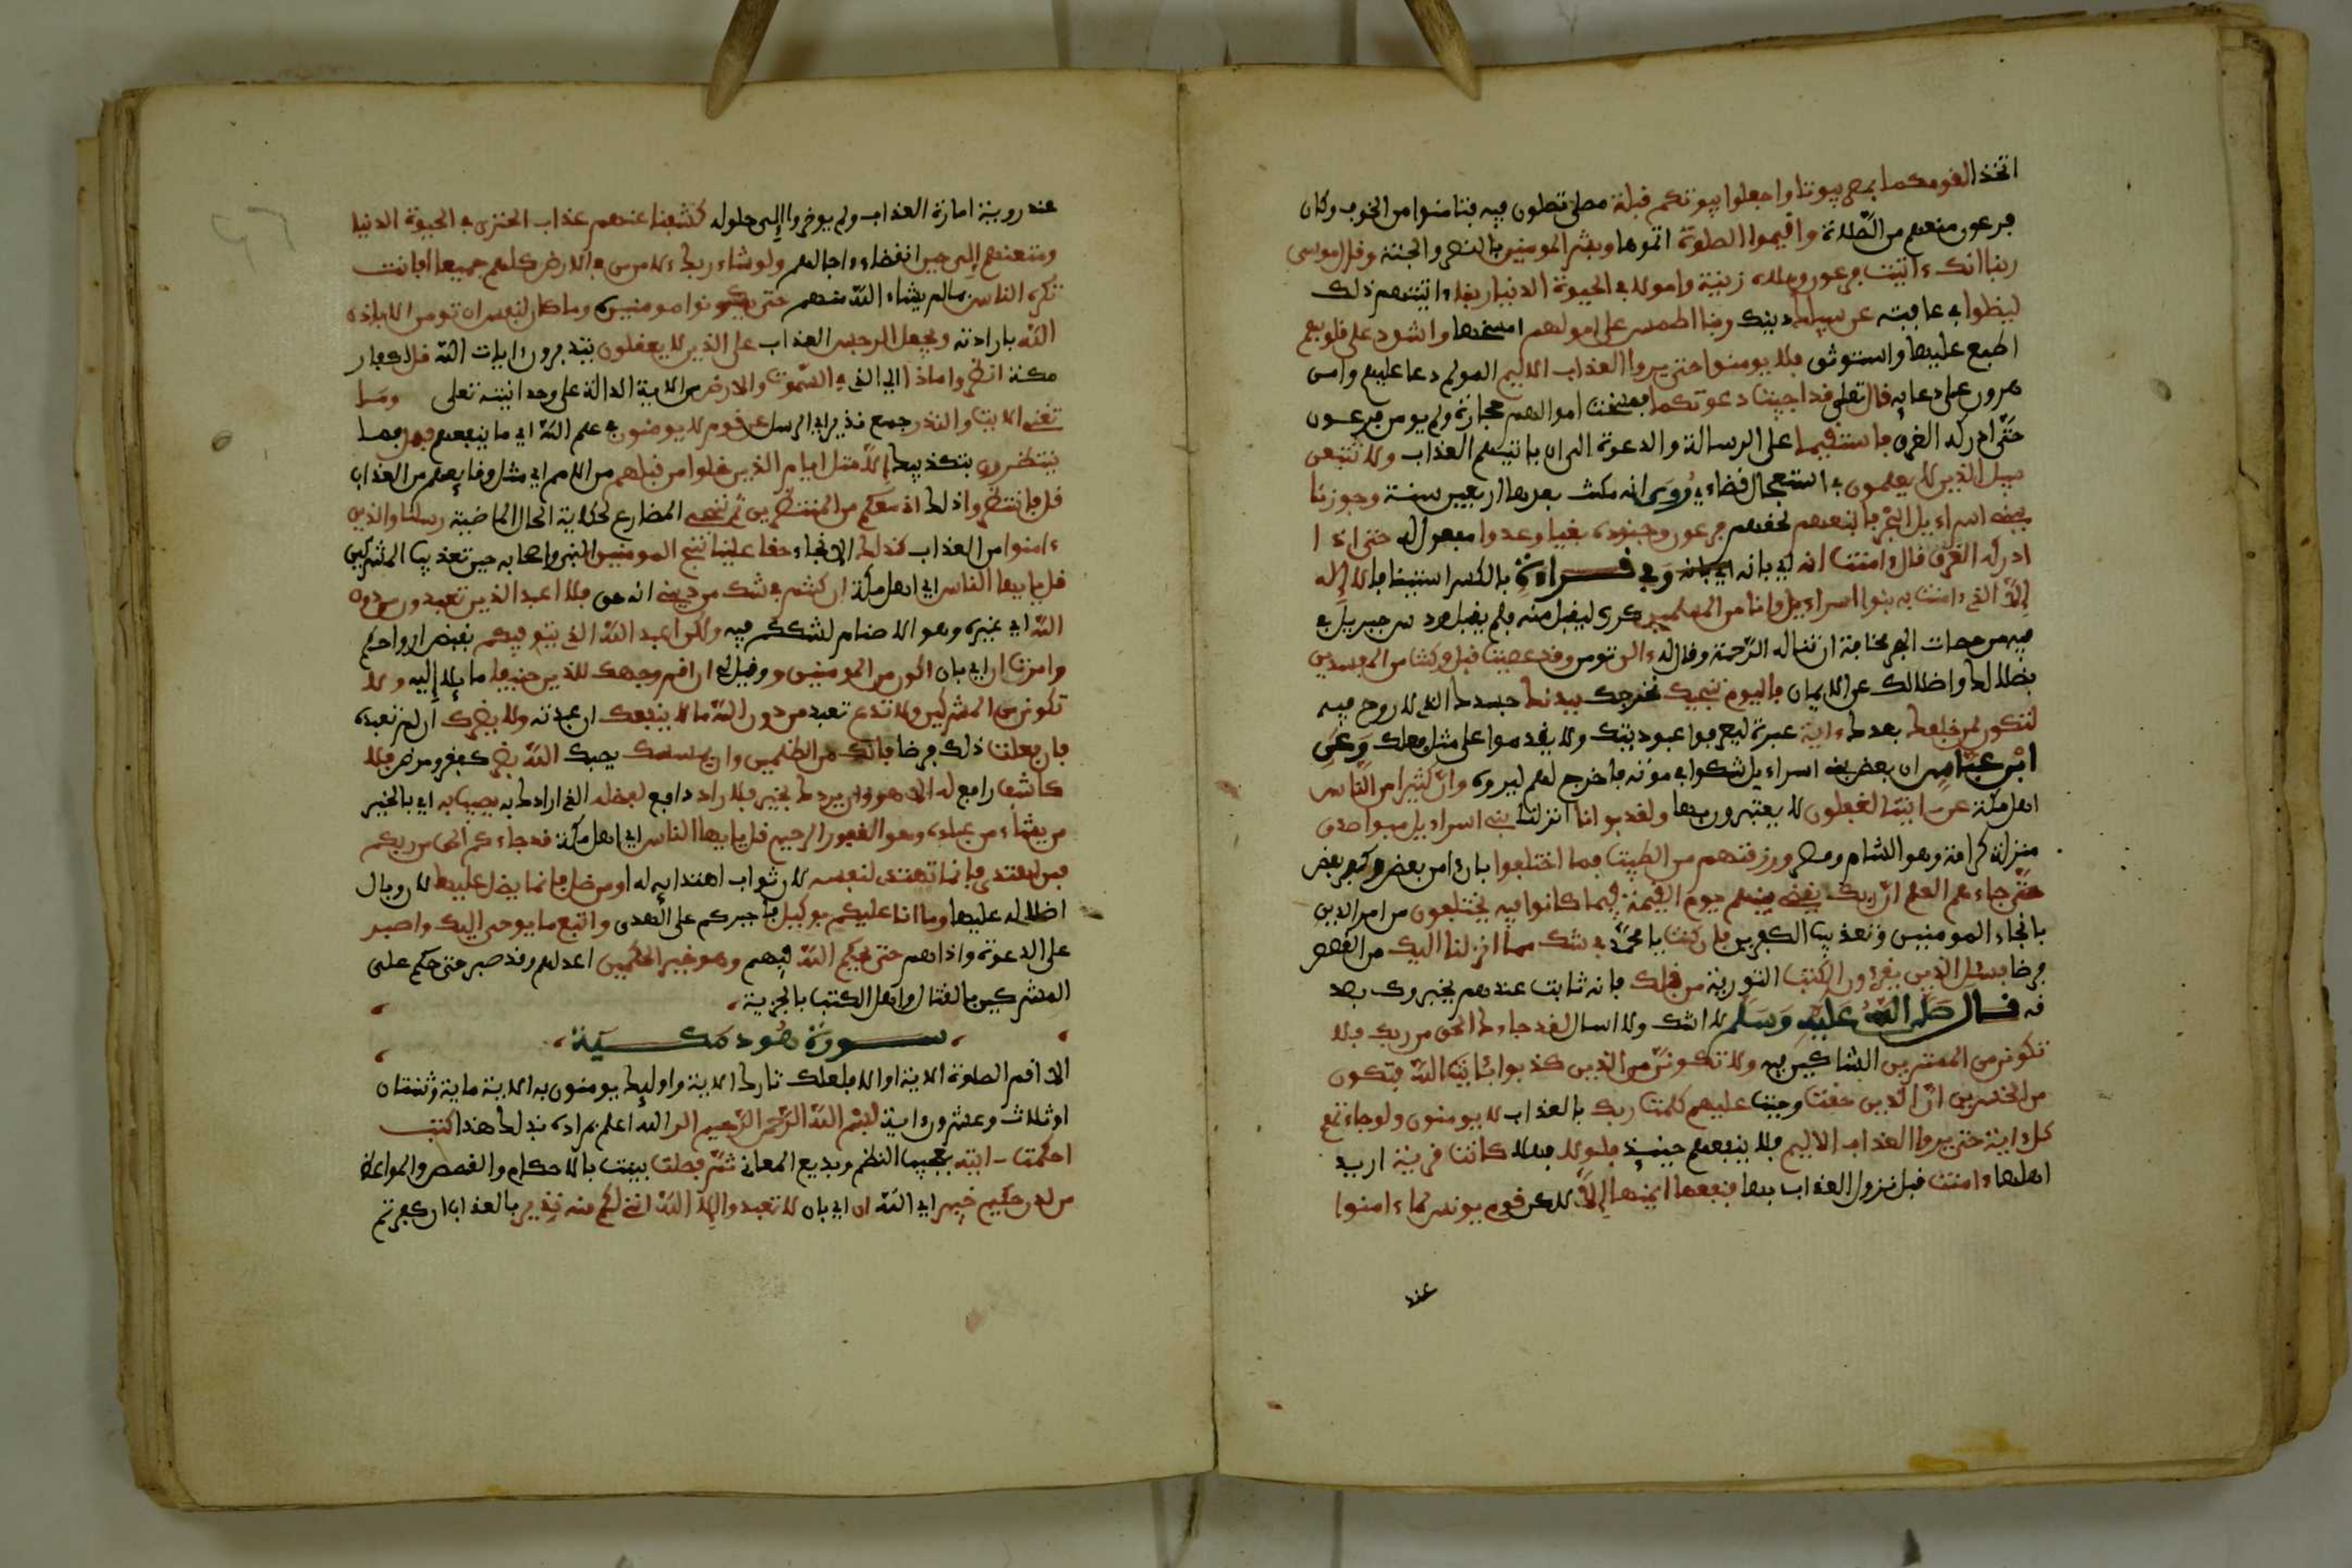 اتخذا لقومكما بمصر بيوتا واجعلوا بيوتكم قبلة مصلى تصلون فيه لتامنوا من الخوف وكان
فرعون منعهم من الصلاة واقيموا الصلوة اتموها وبشر المومنين بالنصر والجنة وقال موسى
ربنا انك ءاتيت فرعون وملاه زينة واموالا في الحيوة الدنيا ربنا ءاتيتهم ذلك
ليضلوا في عاقبته عن سبيلك دينك ربنا اطمس على امولهم امسخها واشدد على قلوبهم
اطبع عليها واستوثق فلا يومنوا حتى يروا العذاب الاليم المولم دعا عليهم وامن
هرون على دعايه قال تعلى قد اجيبت دعوتكما فمسخت اموالهم حجارة ولم يومن فرعون
حتى ادركه الغرق فاستقيما على الرسالة والدعوة الى ان ياتيهم العذاب ولا تتبعن
سبيل الذين لا يعلمون في استعجال قضاءي روى انه مكث بعدها اربعين سنة وجوزنا
ببني اسراءيل البحر فاتبعهم لحقهم فرعون وجنوده بغيا وعدوا مفعول له حتى اذا
ادركه الغرق قال ءامنت انه اي بانه وفي قراءة بالكسر استينافا لا إله
إلا الذي ءامنت به بنوا اسراءيل وانا من المسلمين كرره ليقبل منه فلم يقبل ودس جبريل في
فيه من حمات البحر مخافة ان تناله الرحمة وقال له ءالن تومن وقد عصيت قبل وكنت من المفسدين
بضلالك واضلالك عن الايمان فاليوم ننجيك نخرجك ببدنك جسدك الذي لا روح فيه
لتكون لمن خلفك بعدك ءاية عبرة ليعرفوا عبوديتك ولا يقدموا على مثل فعلك وعن
ابن عباس ان بعض بني اسراءيل شكوا في موته فاخرج لهم ليروه وان كثيرا من الناس
اهل مكة عن ءايتنا لغفلون لا يعتبرون بها ولقد بوانا انزلنا بني اسراءيل مبوا صدق
منزل كرامة وهو الشام ومصر ورزقنهم من الطيبت فما اختلفوا بان امن بعض وكفر بعض
حتى جاءهم العلم ان ربك يقضي بينهم يوم القيمة فيما كانوا فيه يختلفون من امر الدين
بانجاء المومنين وتعذيب الكفرين فان كنت يا محمد في شك مما انزلنا اليك من القصص
فرضا فسئل الذين يقرءون الكتب التورية من قبلك فانه ثابت عندهم يخبروك بصد
قه قال صلى الله عليه وسلم لا اشك ولا اسال لقد جاءك الحق من ربك فلا
تكونن من الممترين الشاكين فيه ولا تكونن من الذين كذبوا بئايت الله فتكون
من الخسرين ان الذين حقت وجبت عليهم كلمت ربك بالعذاب لا يومنون ولو جاءتهم
كل ءاية حتى يروا العذاب الاليم فلا ينفعهم حينيذ فلولا فهلا كانت قرية اريد
اهلها ءامنت قبل نزول العذاب بها فنفعها ايمنها إلا لاكن قوم يونس لما ءامنوا
عند
عند روية امارة العذاب ولم يوخروا إلى حلوله كشفنا عنهم عذاب الخزي في الحيوة الدنيا
ومتعنهم إلى حين انقضاء ءاجالهم ولو شاء ربك لامن من في الارض كلهم جميعا افانت
تكره الناس بما لم يشاء الله منهم حتى يكونوا مومنين وما كان لنفس ان تومن الا باذن
الله بارادته ويجعل الرجس العذاب على الذين لا يعقلون يتدبرون ءايات الله قل لكفار
مكة انظروا ماذا اي الذي في السموت والارض من الايت الدالة على وحدانيته تعلى وما
تغني الايت والنذر جمع نذير اي الرسل عن قوم لا يومنون في علم الله اي ما ينفعهم فهل فما
ينتظرون بتكذيبك إلا مثل ايام الذين خلوا من قبلهم من الامم اي مثل وقايعهم من العذاب
قل فانتظروا ذلك اني معكم من المنتظرين ثم ننجي المضارع لحكاية الحال الماضية رسلنا والذين
ءامنوا من العذاب كذلك الانجاء حقا علينا ننج المومنين النبي واصحابه حين تعذيب المشركين
قل يايها الناس اي اهل مكة ان كنتم في شك من ديني انه حق فلا اعبد الذين تعبدون من دون
الله اي غيره وهو الاصنام لشككم فيه ولكن اعبد الله الذي يتوفيكم بقبض ارواحكم
وامرت ان اي بان اكون من المومنين و وقيل لي ان اقم وجهك للدين حنيفا مايلا إليه ولا
تكونن من المشركين ولا تدع تعبد من دون الله ما لا ينفعك ان عبدته ولا يضرك ان لم تعبده
فان فعلت ذلك فرضا فانك من الظلمين وان يمسسك يصبك الله بضر كفقر ومرض فلا
كاشف رافع له الا هو وان يردك بخير فلا راد دافع لفضله الذي ارادك به يصيب به اي بالخير
من يشاء من عباده وهو الغفور الرحيم قل يايها الناس اي اهل مكة قد جاءكم الحق من ربكم
فمن اهتدى فانما تهتدي لنفسه لان ثواب اهتدايه له ومن ضل فانما يضل عليها لان وبال
اضلاله عليها وما انا عليكم بوكيل فاجبركم على الهدى واتبع ما يوحى اليك واصبر
على الدعوة واذاهم حتى يحكم الله فيهم وهو خير الحكمين اعدلهم وقد صبر حتى حكم على
المشركين بالقتال واهل الكتب بالجزية
سورة هود مكية
الا اقم الصلوة الاية او الا فلعلك تارك الاية واوليك يومنون به الاية ماية وثنتان
او ثلاث وعشرون ءاية بسم الله الرحمن الرحيم الر الله اعلم بمراده بذلك هذا كتب
احكمت ءايته بعجيب النظم وبديع المعاني ثم فصلت بينت بالاحكام والقصص والمواعظ
من لدن حكيم خبير اي الله ان اي بان لا تعبدوا إلا الله انني لكم منه نذير بالعذاب ان كفرتم